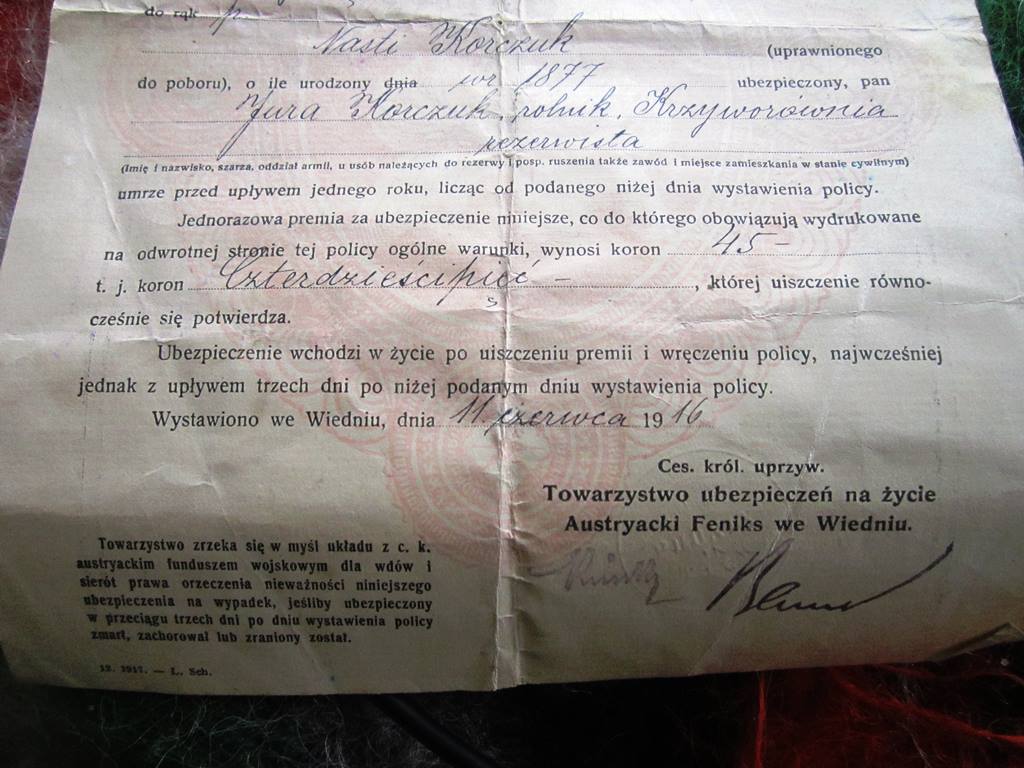 do rąk p.
Nasti Korczuk (uprawnionego
do poboru), o ile urodzony dnia wr 1877 ubezpieczony, pan
Jura Korczuk, rolnik, Krzyworownia
rezerwista
(Imię i nazwisko, szarża, oddział armii, u osób należących do rezerwy i posp. ruszenia także zawód i miejsce zamieszkania w stanie cywilnym)
umrze przed upływem jednego roku, licząc od podanego niżej dnia wystawienia policy.
Jednorazowa premia za ubezpieczenie niniejsze, co do którego obowiązują wydrukowane
na odwrotnej stronie tej policy ogólne warunki, wynosi koron 45 –
t. j. koron Czterdzieścipięć – , której uiszczenie równo-
cześnie się potwierdza.
Ubezpieczenie wchodzi w życie po uiszczeniu premii i wręczeniu policy, najwcześniej
jednak z upływem trzech dni po niżej podanym dniu wystawienia policy.
Wystawiono we Wiedniu, dnia 11 czerwca 1916
Ces. król. uprzyw.
Towarzystwo ubezpieczeń na życie
Austryacki Feniks we Wiedniu.
Towarzystwo zrzeka się w myśl układu z c. k.
austryackim funduszem wojskowym dla wdów i
sierót prawa orzeczenia nieważności niniejszego
ubezpieczenia na wypadek, jeśliby ubezpieczony
w przeciągu trzech dni po dniu wystawienia policy
zmarł, zachorował lub zraniony został.
L. Sch.